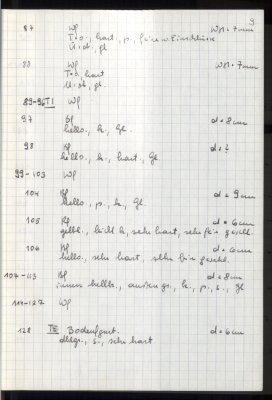 9
87 Wp WM = 7mm
T.o., hart, p., feine w. Einschlüsse
U.ch., gl
88 Wp WM = 7mm
T.o., hart
U.ch., gl.
89-96 TI Wp
97 Bp d = 8cm
hellb., k., gl.
98 Bp d = ?
hellb., k., hart, gl
99-103 Wp
104 Bp d = 9cm
hellb., p., k., gl.
105 Rp d = 6cm
gelbl., leicht k, sehr hart, sehr fein geschl.
106 Rp d = 6cm
hellb., sehr hart, sehr fein geschl.
107-113 Bp d = 8cm
innen hellb., aussen gr., k., p., s., gl
114-127 Wp
128 TE Bodenfgmt. d = 6cm
dklgr., s., sehr hart